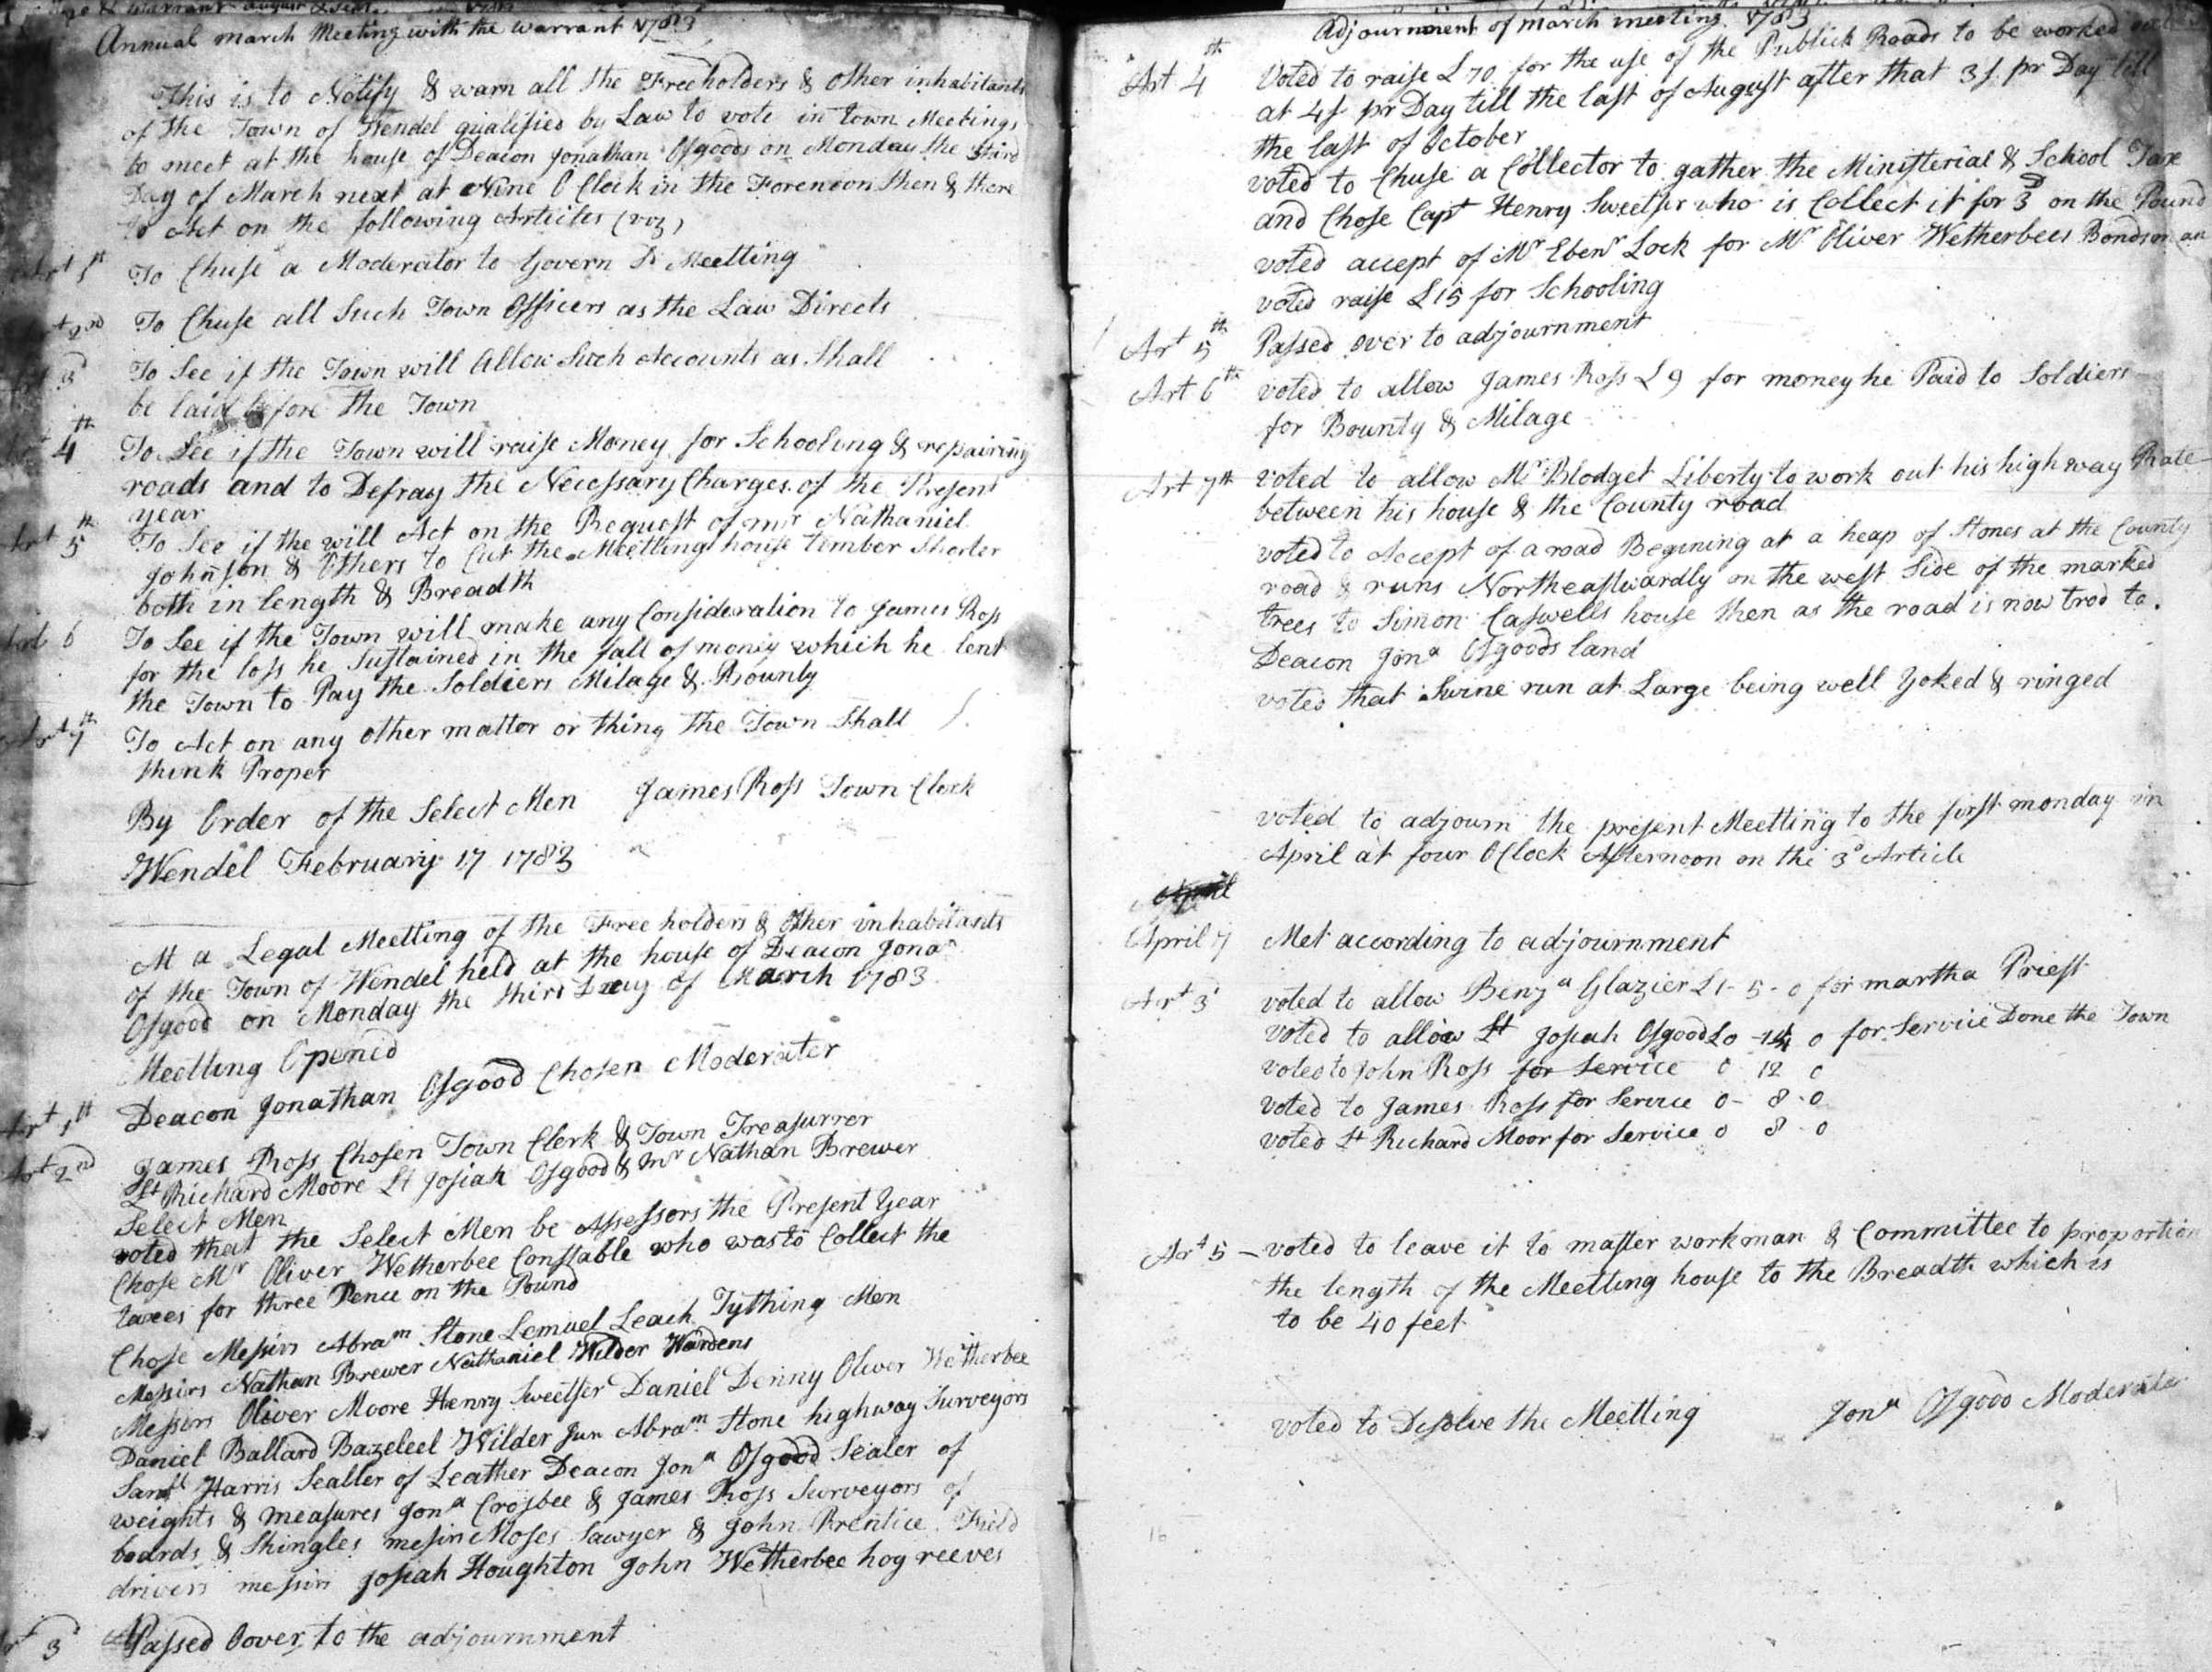 Annual march Meeting with the Warrant 1783
This is to Notify & warn all the Freeholders & other inhabitants
of the Town of Wendel qualified by Law to vote in town Meetings
to meet at the house of Deacon Jonathan Osgoods on Monday the third
Day of March next at Nine O Clock in the Forenoon then & there
to Act on the following Articles (viz)
Art 1st To Chuse a Moderator to Govern Sd Meetting
2nd To Chuse all Such Town Officers as the Law Directs
3d To See if the Town will Allow Such Accounts as Shall
be laid before the Town
4th To See if the Town will raise Money for Schooling & repairing
roads and to Defray the Necessary Charges of the Present
year
Art 5th To See if the will Act on the Request of mr Nathaniel
Johnson & Others to Cut the Meetting house timber Shorter
both in length & Breadth
Art 6 To See if the Town will make any Consideration to James Ross
for the loss he Sustained in the fall of money which he lent
the Town to Pay the Soldiers Milage & Bounty
Art 7th To Act on any other mattor or thing the Town Shall
think Proper
By Order of the Select Men James Ross Town Clerk
Wendel February 17 1783
At a Legal Meetting of the Free holders & Other inhabitants
of the Town of Wendel held at the house of Deacon Jonan
Osgood on Monday the third Day of March 1783
Meetting Opened
Art 1st Deacon Jonathan Osgood Chosen Moderater
Art 2nd James Ross Chosen Town Clerk & Town Treasurrer
Lt Richard Moore Lt Josiah Osgood & mr Nathan Brewer
Select Men
voted that the Select Men be Assessors the Present Year
Chose Mr Oliver Wetherbee Constable who was to Collect the
taxes for three Pence on the Pound
Chose Messirs Abram Stone Lemuel Leach Tything Men
Messirs Nathan Brewer Nathaniel Wilder Wardens
Messirs Oliver Moore Henry Sweetser Daniel Denny Oliver Wetherbee
Daniel Ballard Bazeleel Wilder Jun Abram Stone highway Surveyors
Saml Harris Sealler of Leather Deacon Jona Osgood Sealer of
weights & measures Jona Crosbee & James Ross Surveyors of
boards & Shingles messirs Moses Sawyer & John Prentice Field
drivers messirs Josiah Houghton John Wetherbee hog reeves
3d Passed Oover to the adjournment
Adjournment of march meeting 1783
Art 4th Voted to raise £70 for the use of the Publick Roads to be worked out
at 4s pr Day till the last of August after that 3s pr Day till
the last of October
voted to Chuse a Collector to gather the Ministerial & School Tax
and Chose Capt Henry Sweetser who is Collect it for 3d on the Pound
voted accept of Mr Ebenr Lock for Mr Oliver Wetherbees Bondsman
voted raise £15 for Schooling
Art 5th Passed over to adjournment
Art 6th voted to allow James Ross £9 for money he Paid to Soldiers
for Bounty & Milage
Art 7th voted to allow Mr Blodget Liberty to work out his high way Rate
between his house & the County road
voted to Accept of a road Begining at a heap of Stones at the County
road & runs Northeastwardly on the west Side of the marked
trees to Simon Caswells house then as the road is now trod to
Deacon Jona Osgoods land
voted that Swine run at Large being well Yoked & ringed
voted to adjourn the present Meetting to the first monday in
April at four OClock Afternoon on the 3d Article
April
April 7 Met according to adjournment
Art 3d voted to allow Benja Glazier £1-5-0 for martha Priest
voted to allow Lt Josiah Osgood £0-14 0 for Service Done the Town
voted to John Ross for Service 0 12 0
voted to James Ross for Service 0-8-0
voted Lt Richard Moor for Service 0 8-0
Art 5 - voted to leave it to master workman & Committee to proportion
the length of the Meetting house to the Breadth which is
to be 40 feet
voted to Desolve the Meetting Jona Osgood Moderater
16